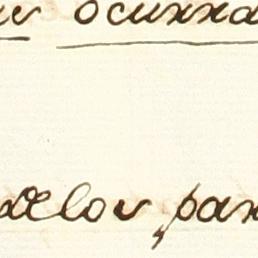 ue ocurra
de los par